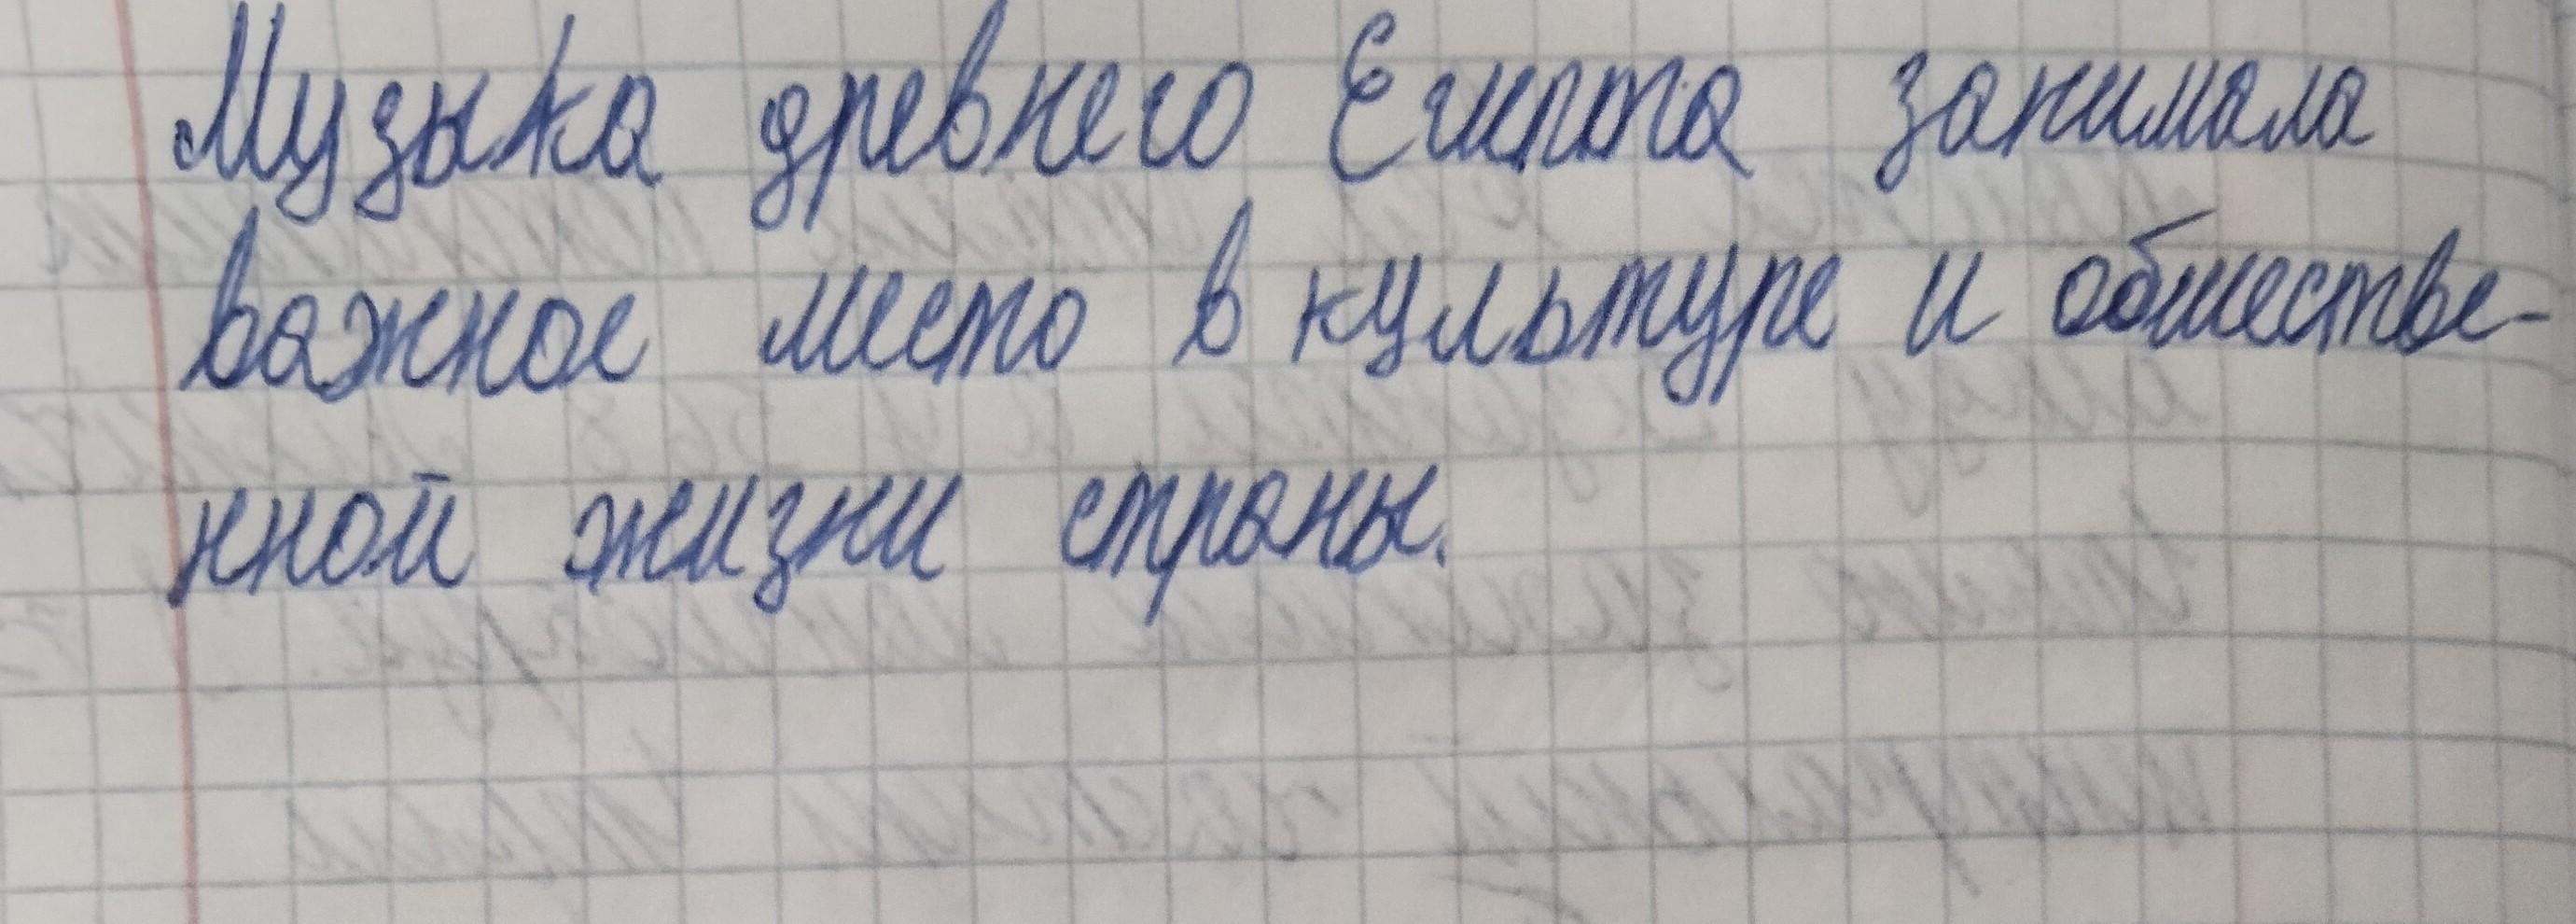 Музыка древнего Египта занимала
важное место в культуре и обществе-
нной жизни страны.